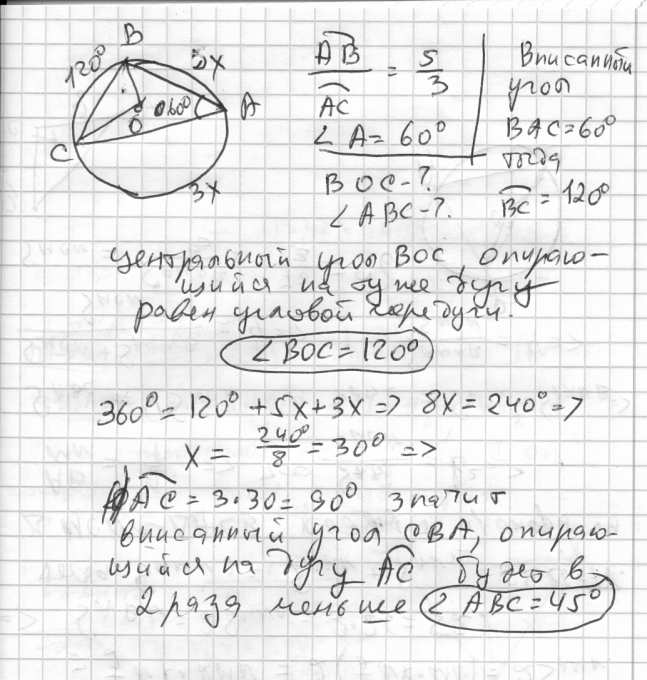 B
120°
5x
60°
A
O
C
3x
AB / AC = 5 / 3
∠A = 60°
BOC - ?
∠ABC - ?.
Вписанный
угол
BAC = 60°
тогда
BC = 120°
центральный угол BOC, опираю-
щийся на ту же дугу
равен угловой мере дуги.
∠BOC = 120°
360° = 120° + 5x + 3x => 8x = 240° =>
x = 240° / 8 = 30° =>
AC = 3·30 = 90° значит
вписанный угол CBA, опираю-
щийся на дугу AC будет в
2 раза меньше ∠ABC = 45°